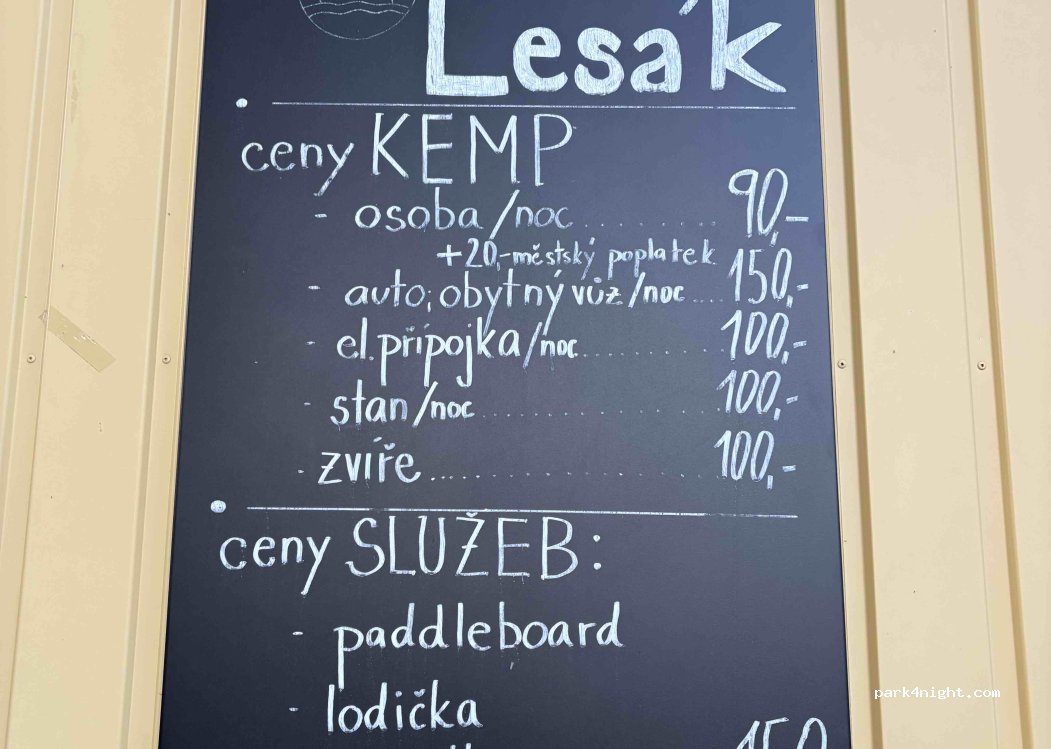 Lesák
ceny KEMP
- osoba/noc ........ 90,-
+20,-městský poplatek
- auto, obytný vůz/noc .... 150,-
- el. přípojka/noc ........ 100,-
- stan/noc ........ 100,-
- zvíře ........ 100,-
ceny SLUŽEB:
- paddleboard
- lodička
150
park4night.com